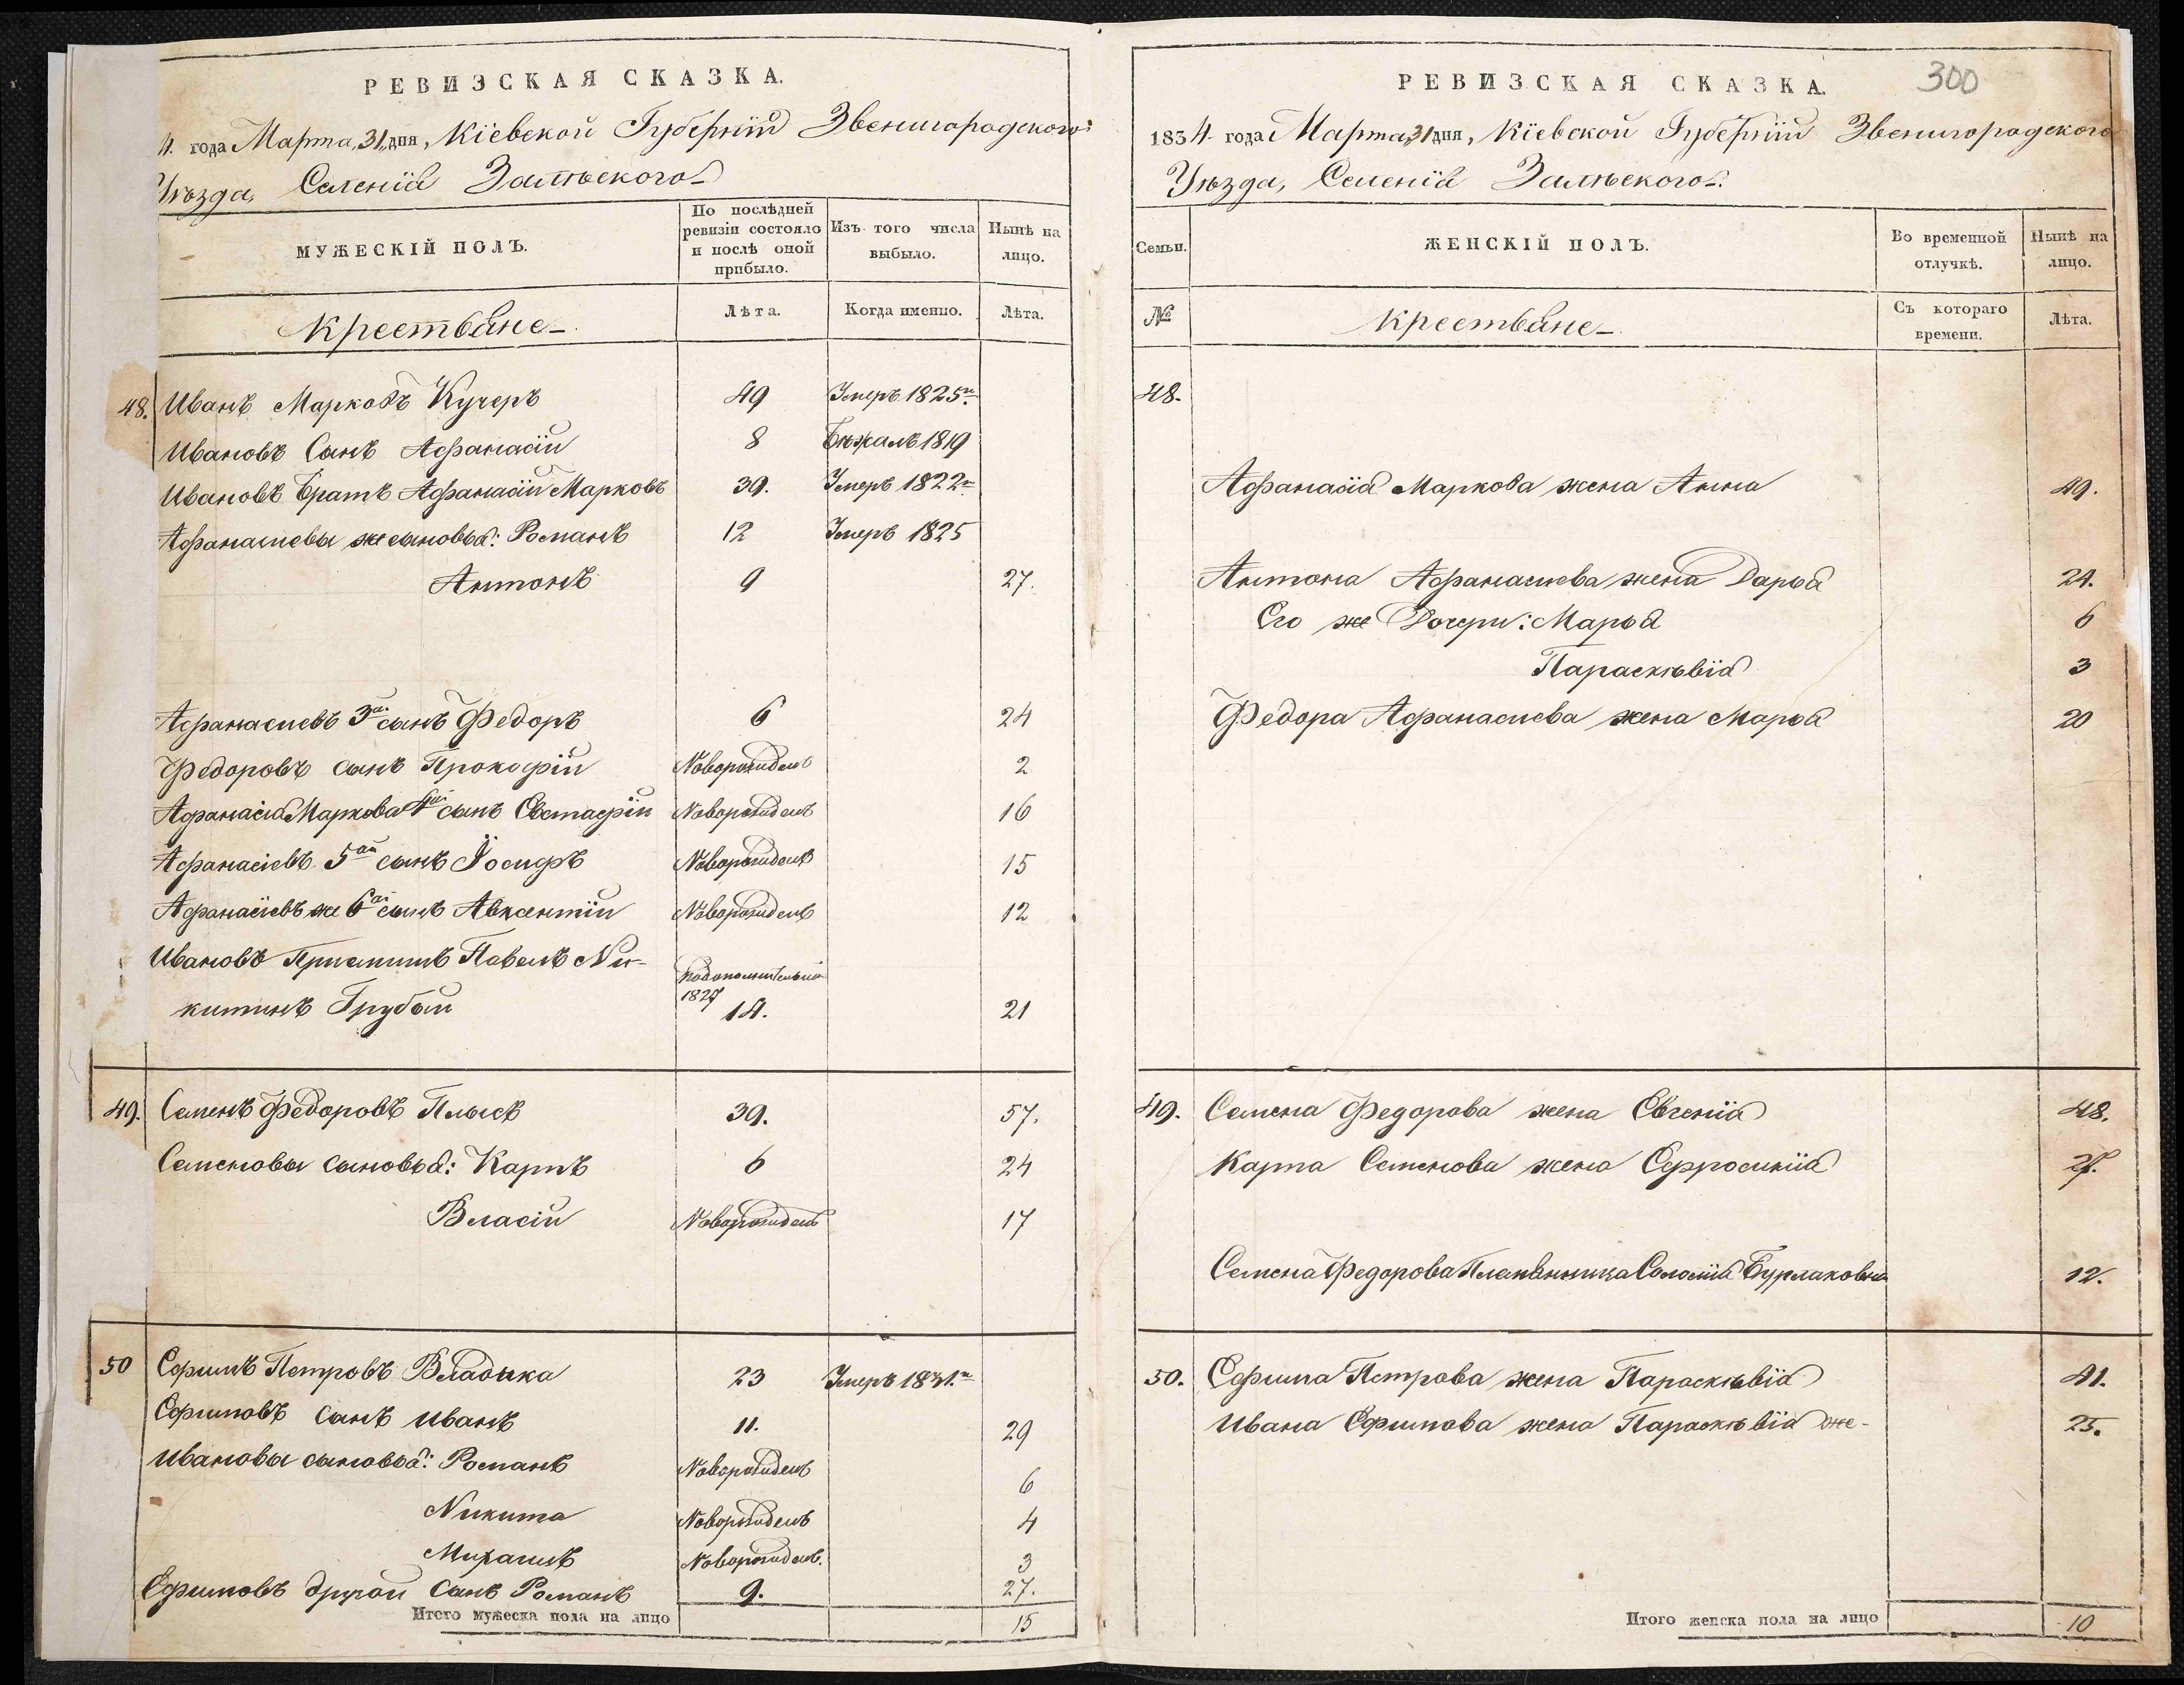 РЕВИЗСКАЯ СКАЗКА.
4. года Марта, 31, дня, Кіевской Губерніи Звенигородского
Уѣзда, Селенія Залѣского
МУЖЕСКІЙ ПОЛЪ.
По послѣдней ревизіи состояло и послѣ оной прибыло.
Изъ того числа выбыло.
Нынѣ на лицо.
Крестьяне
Лѣта.
Когда именно.
Лѣта.
48. Иванъ Марковъ Кучеръ 49 Умеръ 1825го
Ивановъ Сынъ Афанасій 8 Бѣжалъ 1819
Ивановъ Братъ Афанасій Марковъ 39. Умеръ 1822го
Афанасиевы же сыновья: Романъ 12 Умеръ 1825
Антонъ 9 27.
Афанасиевъ 3й сынъ Федоръ 6 24
Федоровъ сынъ Прокофій Новорожденъ 2
Афанасія Маркова 4ый сынъ Евстафій Новорожденъ 16
Афанасіевъ 5ый сынъ Іосифъ Новорожденъ 15
Афанасіевъ же 6й сынъ Авксентій Новорожденъ 12
Ивановъ Приемышъ Павелъ Ни-
китинъ Грубый 1827 14. 21
49. Семенъ Федоровъ Плысъ 39. 57.
Семеновы сыновья: Карпъ 6 24
Власій Новорожденъ 17
50 Ефимъ Петровъ Владыка 23 Умеръ 1831го
Ефимовъ Сынъ Иванъ 11. 29
Ивановы сыновья: Романъ Новорожденъ 6
Никита Новорожденъ 4
Михаилъ Новорожденъ. 3
Ефимовъ другой Сынъ Романъ 9. 27.
Итого мужеска пола на лицо 15
РЕВИЗСКАЯ СКАЗКА.
300
1834 года Марта, 31 дня, Кіевской Губерніи Звенигородского
Уѣзда, Селенія Залѣского.
Семьи.
ЖЕНСКІЙ ПОЛЪ.
Во временной отлучкѣ.
Нынѣ на лицо.
№
Крестьяне
Съ котораго времени.
Лѣта.
48.
Афанасія Маркова жена Анна 49.
Антона Афанасиева жена Дарья 24.
Его же Дочери: Марья 6
Параскѣвія 3
Федора Афанасиева жена Марья 20
49. Семена Федорова жена Евгенія 48.
Карпа Семенова жена Ефросинія 27.
Семена Федорова Племянница Соломія Бурлаковна 12.
50. Ефима Петрова жена Параскѣвія 41.
Ивана Ефимова жена Параскѣвія же- 25.
Итого женска пола на лицо 10